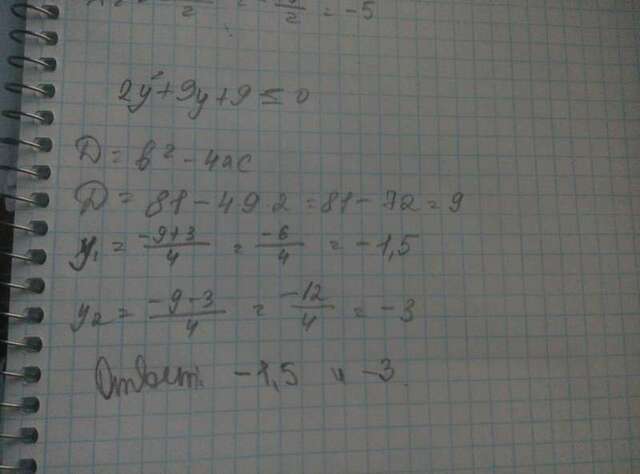 2 2 = -5
2y²+9y+9 ≤ 0
D = b² - 4ac
D = 81 - 4·9·2 = 81 - 72 = 9
y₁ = -9+3/4 = -6/4 = -1,5
y₂ = -9-3/4 = -12/4 = -3
Ответ: -1,5 и -3